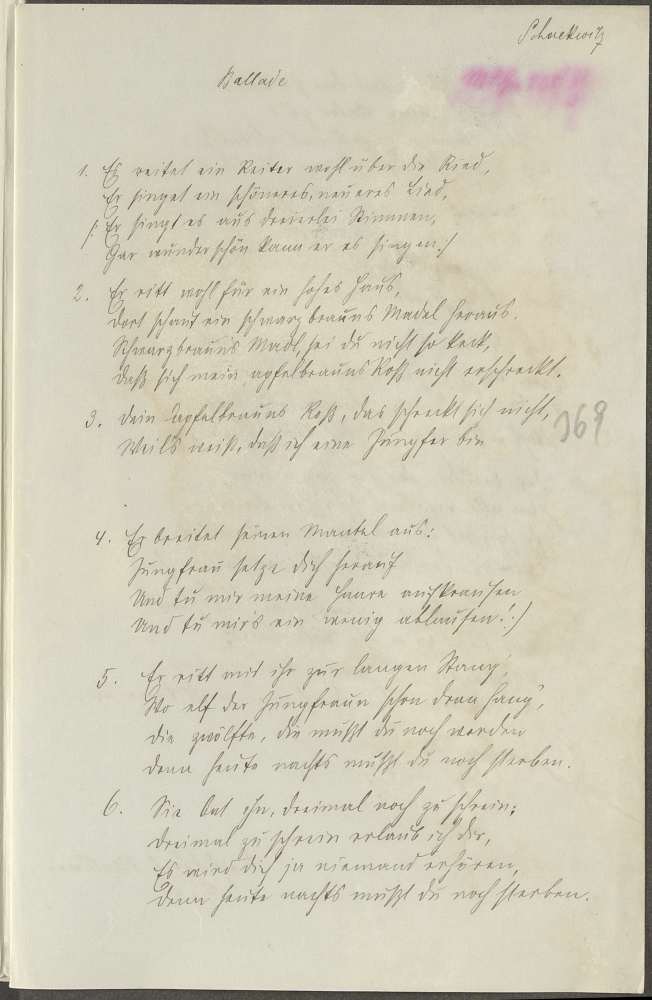 Ballade
1. Es reitet ein Reiter wohl über die Ried,
Er singet ein schöneres, neueres Lied,
/: Er singt es aus dreierlei Stimmen,
Gar wunderschön kann er es singen. :/
2. Er ritt wohl für ein hohes Haus,
Dort schaut ein schwarzbrauns Madel heraus.
Schwarzbrauns Madl, sei du nicht so keck,
daß sich mein apfelbrauns Roß nicht erschreckt.
3. Dein apfelbrauns Roß, das schreckt sich nicht,
Weils weiß, daß ich eine Jungfer bin
369
4. Er breitet seinen Mantel aus:
Jungfrau setze dich herauf
Und tu mir meine Haare auskrausen
Und tu mir's ein wenig ablausen! :/
5. Er ritt mit ihr zur langen Stang',
Wo elf der Jungfraun schon dran hang',
die zwölfte, die mußt du noch werden
denn heute nachts mußt du noch sterben.
6. Sie bat ihn, dreimal noch zu schrein:
Dreimal zu schrein erlaub ich dir,
Es wird dich ja niemand erhören,
Denn heute nachts mußt du noch sterben.